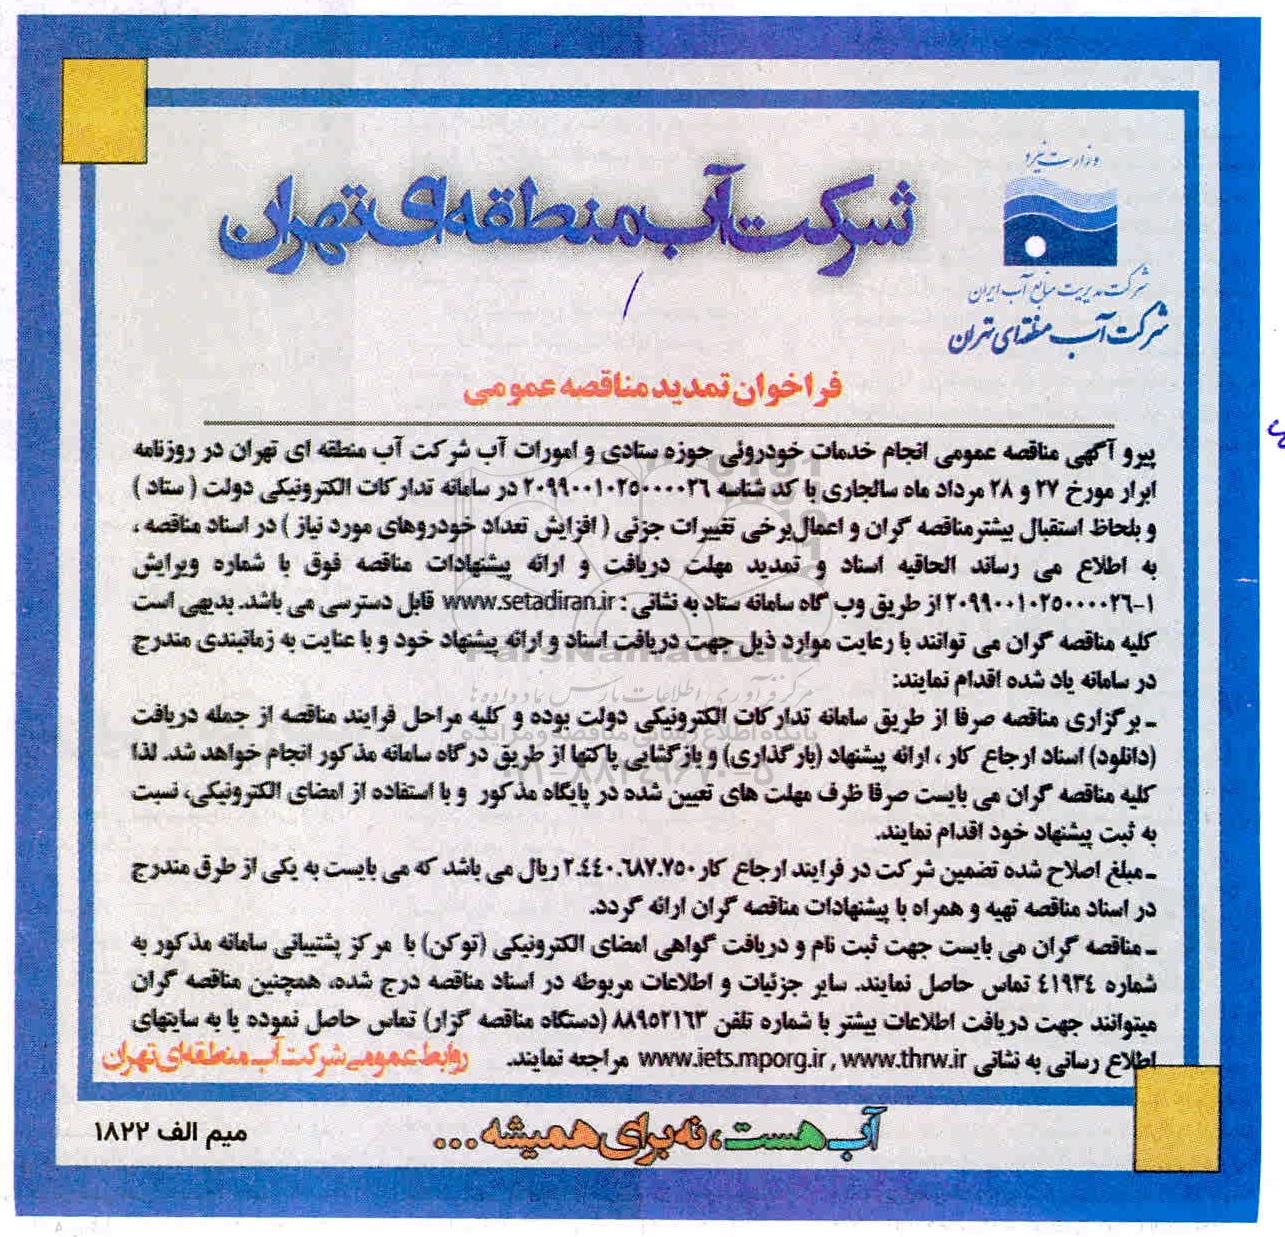 وزارت نیرو
شرکت مدیریت منابع آب ایران
شرکت آب منطقه‌ای تهران
شرکت آب منطقه‌ای تهران
فراخوان تمدید مناقصه عمومی
پیرو آگهی مناقصه عمومی انجام خدمات خودروئی حوزه ستادی و امورات آب شرکت آب منطقه ای تهران در روزنامه
ابرار مورخ ۲۷ و ۲۸ مرداد ماه سالجاری با کد شناسه ۲۰۹۹۰۰۱۰۲۵۰۰۰۰۲۶ در سامانه تدارکات الکترونیکی دولت ( ستاد )
و بلحاظ استقبال بیشتر مناقصه گران و اعمال برخی تغییرات جزئی ( افزایش تعداد خودروهای مورد نیاز ) در اسناد مناقصه ،
به اطلاع می رساند الحاقیه اسناد و تمدید مهلت دریافت و ارائه پیشنهادات مناقصه فوق با شماره ویرایش
۲۰۹۹۰۰۱۰۲۵۰۰۰۰۲۶-۱ از طریق وب گاه سامانه ستاد به نشانی : www.setadiran.ir قابل دسترسی می باشد. بدیهی است
کلیه مناقصه گران می توانند با رعایت موارد ذیل جهت دریافت اسناد و ارائه پیشنهاد خود و با عنایت به زمانبندی مندرج
در سامانه یاد شده اقدام نمایند:
ـ برگزاری مناقصه صرفا از طریق سامانه تدارکات الکترونیکی دولت بوده و کلیه مراحل فرایند مناقصه از جمله دریافت
(دانلود) اسناد ارجاع کار ، ارائه پیشنهاد (بارگذاری) و بازگشایی پاکتها از طریق درگاه سامانه مذکور انجام خواهد شد. لذا
کلیه مناقصه گران می بایست صرفا ظرف مهلت های تعیین شده در پایگاه مذکور و با استفاده از امضای الکترونیکی، نسبت
به ثبت پیشنهاد خود اقدام نمایند.
ـ مبلغ اصلاح شده تضمین شرکت در فرایند ارجاع کار ۲.۴۴۰.۶۸۷.۷۵۰ ریال می باشد که می بایست به یکی از طرق مندرج
در اسناد مناقصه تهیه و همراه با پیشنهادات مناقصه گران ارائه گردد.
ـ مناقصه گران می بایست جهت ثبت نام و دریافت گواهی امضای الکترونیکی (توکن) با مرکز پشتیبانی سامانه مذکور به
شماره ٤١٩٣٤ تماس حاصل نمایند. سایر جزئیات و اطلاعات مربوطه در اسناد مناقصه درج شده، همچنین مناقصه گران
میتوانند جهت دریافت اطلاعات بیشتر با شماره تلفن ۸۸۹۵۲۱۶۳ (دستگاه مناقصه گزار) تماس حاصل نموده یا به سایتهای
اطلاع رسانی به نشانی www.iets.mporg.ir , www.thrw.ir مراجعه نمایند.
روابط عمومی شرکت آب منطقه‌ای تهران
آب هست، نه برای همیشه ...
میم الف ۱۸۲۲
ParsNamadData
مرکز فرآوری اطلاعات پارس نماد داده ها
پایگاه اطلاع رسانی مناقصه و مزایده
۰۲۱-۸۸۳۴۹۶۷۰-۵